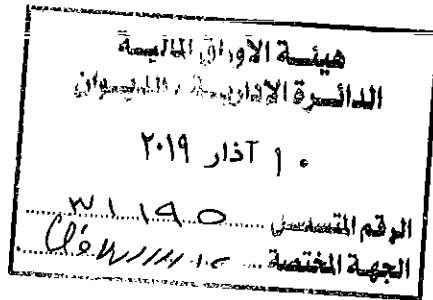 هيئة الأوراق المالية
الدائرة الإدارية / الديوان
١٠ آذار ٢٠١٩
الرقم المتسلسل ٣١١٩٥
الجهة المختصة